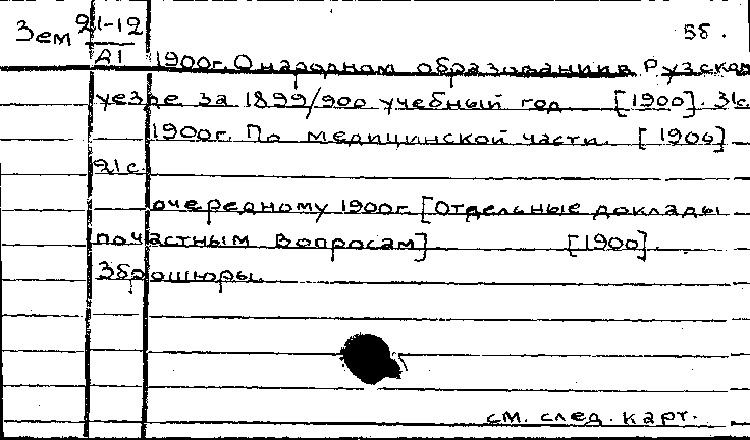 Зем 21-12 55.
А1 1900г. О народном образовании в Рузском
уезде за 1899/900 учебный год [1900]. 31с
1900г. По медицинской части. [1900]
21с.
очередному 1900г. [Отдельные доклады
по частным вопросам] [1900].
3 брошюры.
см. след. карт.